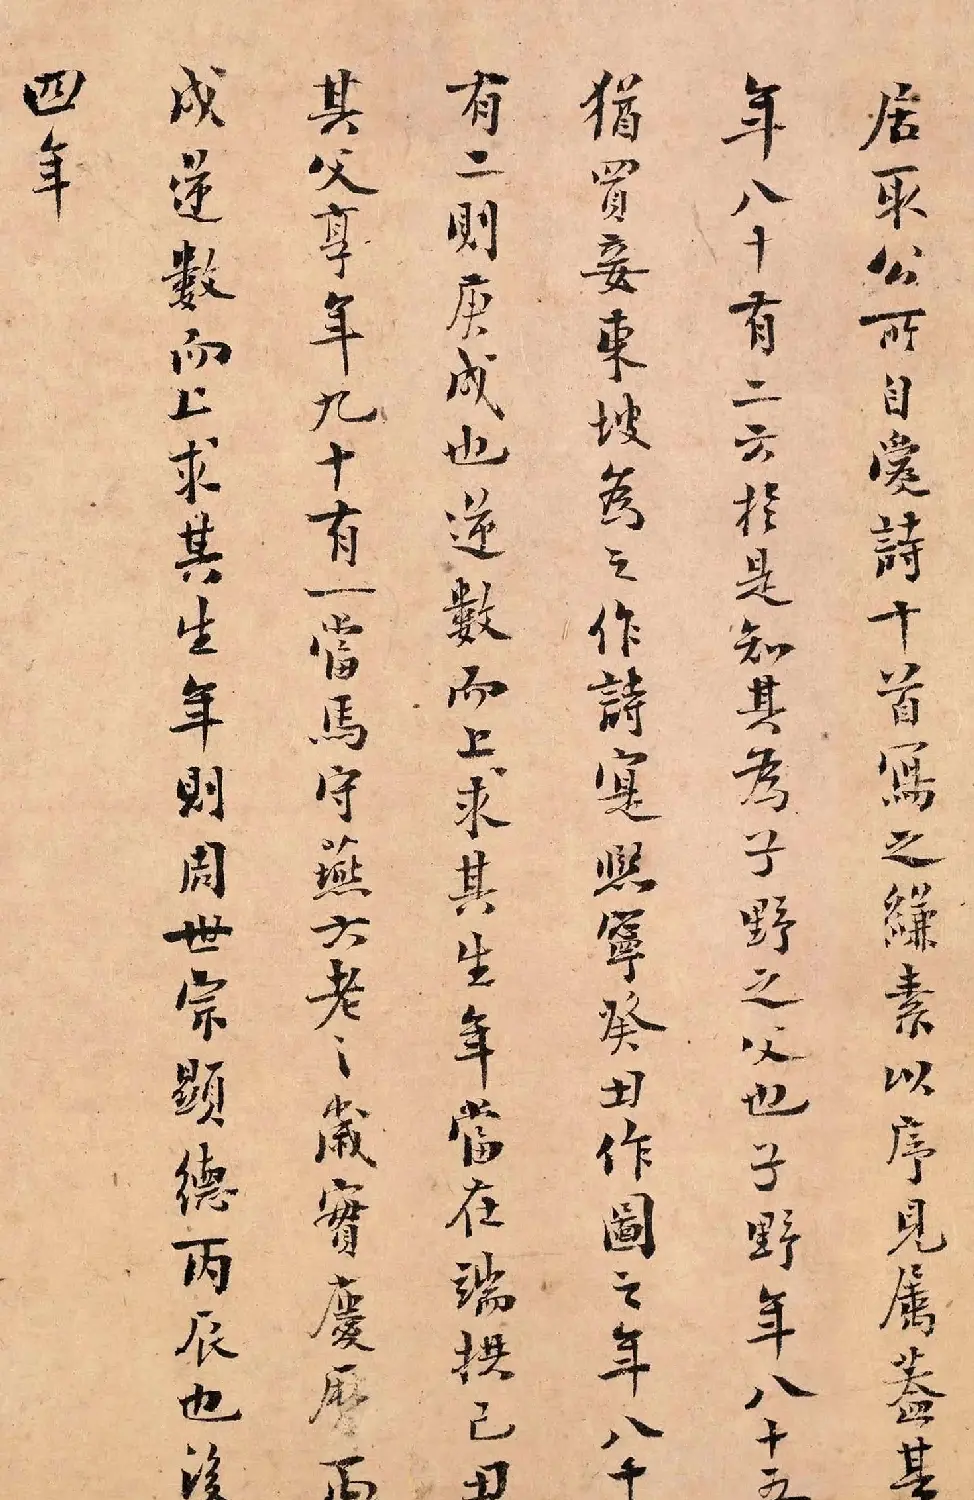 居取公所自愛詩十首寫之縑素以序見属蓋其
年八十有二云於是知其為子野之父也子野年八十五
猶買妾東坡為之作詩寔熈寧癸丑作圖之年八十
有二則庚戌也逆數而上求其生年當在端拱己丑
其父享年九十有一當馬守燕六老之歲實慶曆丙
戌逆數而上求其生年則周世宗顯德丙辰也後
四年